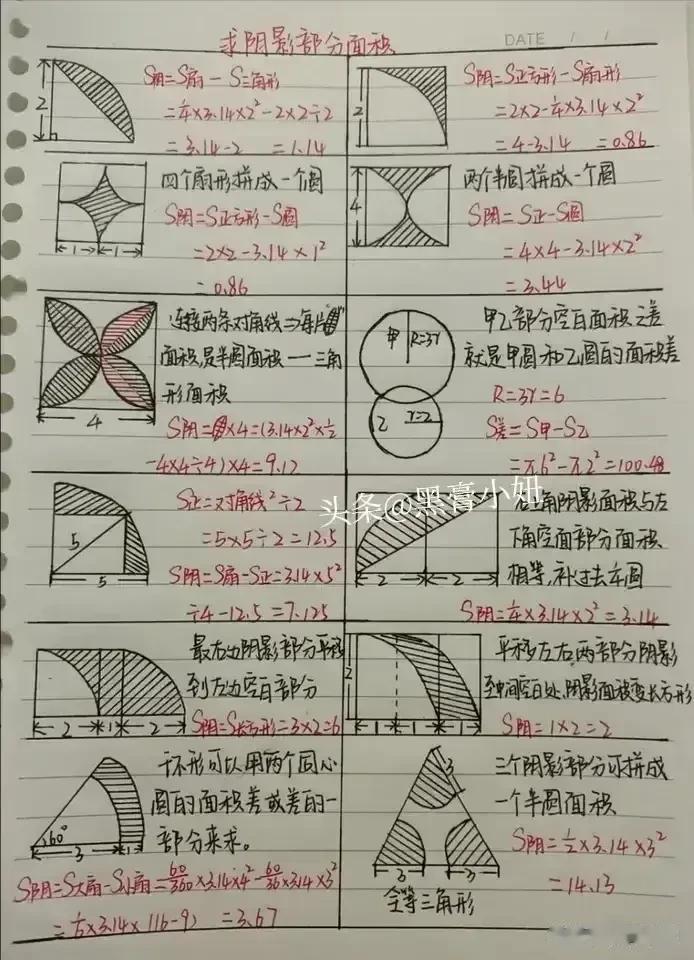 求阴影部分面积
DATE / /
2
S阴=S扇-S三角形
=1/4×3.14×2²-2×2÷2
=3.14-2 =1.14
2
S阴=S正方形-S扇形
=2×2-1/4×3.14×2²
=4-3.14 =0.86
1 1
四个扇形拼成一个圆
S阴=S正方形-S圆
=2×2-3.14×1²
=0.86
4
两个半圆拼成一个圆
S阴=S正-S圆
=4×4-3.14×2²
=3.44
4
连接两条对角线⇒每片
面积是半圆面积一三角
形面积
S阴=×4=(3.14×2²×1/2
-4×4÷4)×4=9.12
甲 R=3r
乙 r=2
甲乙部分空白面积之差
就是甲圆和乙圆的面积差
R=3r=6
S差=S甲-S乙
=π.6²-π.2²=100.48
5
5
S正=对角线²÷2
=5×5÷2=12.5
S阴=S扇-S正=3.14×5²
÷4-12.5=7.125
头条@黑膏小妞
2 2
右上角阴影面积与左
下角空面部分面积
相等,补过去车圆
S阴=1/4×3.14×2²=3.14
2 1 2
最右边阴影部分平移
到左边空白部分
S阴=S长方形=3×2=6
2
1 1 1
平移左右两部分阴影
至中间空白处,阴影面积变长方形
S阴=1×2=2
60°
3 1
环形可以用两个同心
圆的面积差或差的一
部分来求。
S阴=S大扇-S小扇=60/360×3.14×4²-60/36×3.14×3²
=1/6×3.14×(16-9) =3.67
3
3 3
全等三角形
三个阴影部分可拼成
一个半圆面积
S阴=1/2×3.14×3²
=14.13